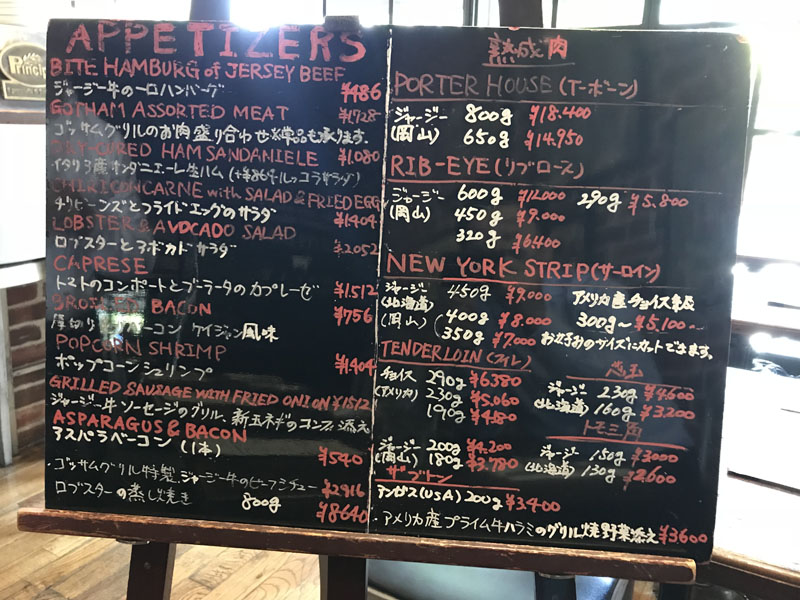 Princip
APPETIZERS
BITE HAMBURG of JERSEY BEEF
ジャージー牛の一口ハンバーグ ¥486
GOTHAM ASSORTED MEAT ¥1728
ゴッサムグリルのお肉盛り合わせ 単品も承ります。
DRY-CURED HAM SANDANIELE ¥1080
イタリア産サンダニエーレ生ハム (+¥864でルッコラサラダ)
CHIRICONCARNE with SALAD & FRIED EGG
チリビーンズとフライドエッグのサラダ ¥1404
LOBSTER & AVOCADO SALAD
ロブスターとアボカドサラダ ¥2052
CAPRESE
トマトのコンポートとブラータのカプレーゼ ¥1512
BROILED BACON ¥756
厚切りベーコン ケイジャン風味
POPCORN SHRIMP
ポップコーンシュリンプ ¥1404
GRILLED SAUSAGE WITH FRIED ONION ¥1512
ジャージー牛ソーセージのグリル、新玉ネギのコンフィ添え
ASPARAGUS & BACON
アスパラベーコン (1本) ¥540
・ゴッサムグリル特製 ジャージー牛のビーフシチュー ¥2916
ロブスターの蒸し焼き 800g ¥8640
熟成肉
PORTER HOUSE (Tーボーン)
ジャージー 800g ¥18.400
(岡山) 650g ¥14.950
RIB-EYE (リブロース)
ジャージー 600g ¥12.000 290g ¥5.800
(岡山) 450g ¥9.000
320g ¥6.400
NEW YORK STRIP (サーロイン)
ジャージー 450g ¥9.000 アメリカ産チョイス牛
(北海道)
(岡山) 400g ¥8.000 300g〜 ¥5.100〜
350g ¥7.000 お好みのサイズにカットできます。
TENDERLOIN (フィレ)
チョイス 290g ¥6380
(アメリカ) 230g ¥5.060
190g ¥4.580
ジャージー 230g ¥4.600
(北海道) 160g ¥3.200
トモ三角
ジャージー 200g ¥4.200
(岡山) 180g ¥3.780
ジャージー 150g ¥3000
(北海道) 130g ¥2.600
ザブトン
アンガス (USA) 200g ¥3.400
・アメリカ産プライム牛ハラミのグリル 焼野菜添え ¥3600